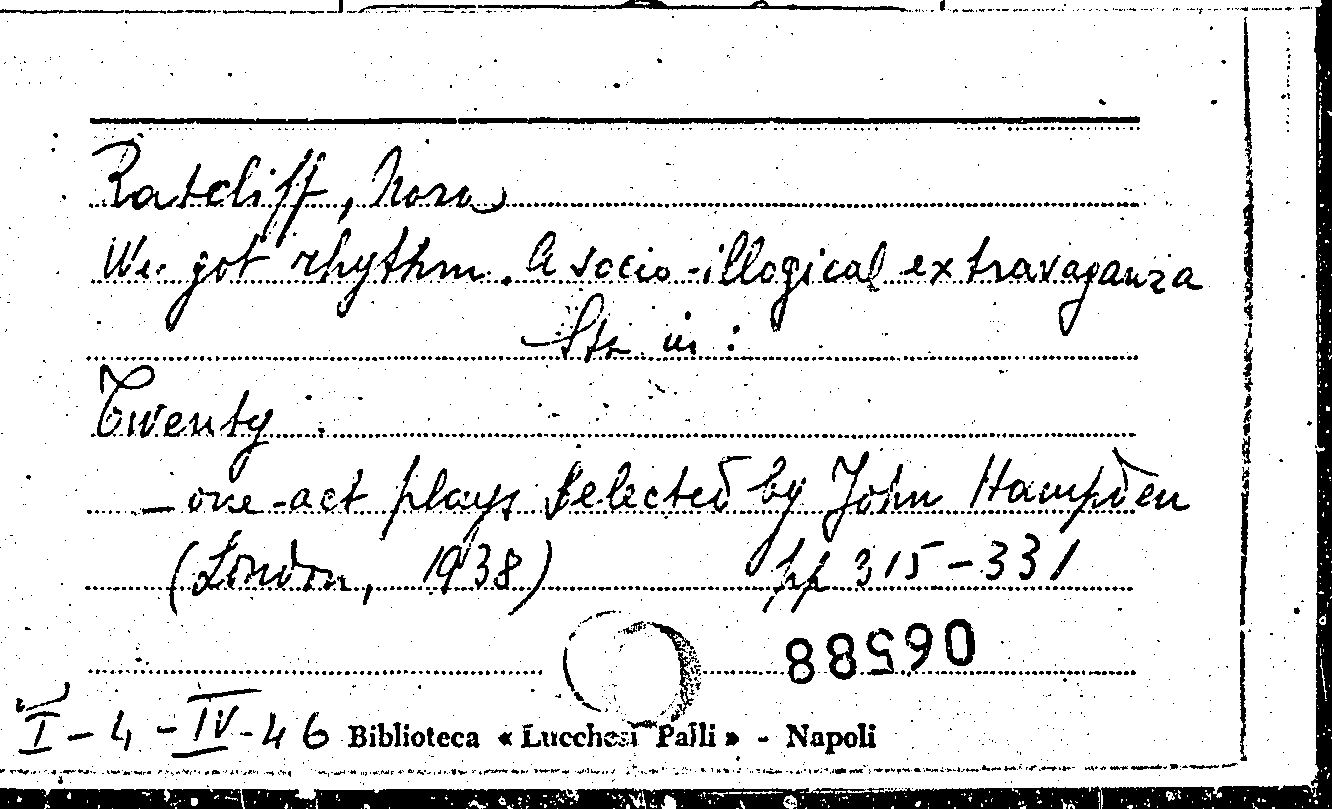 Ratcliff, Nora
We got rhythm. A socio-illogical extravaganza
Sta in :
Twenty
— one-act plays selected by John Hampden
(London, 1938) pp 315-331
06588
I - 4 - IV - 46 Biblioteca « Lucchesi Palli » - Napoli